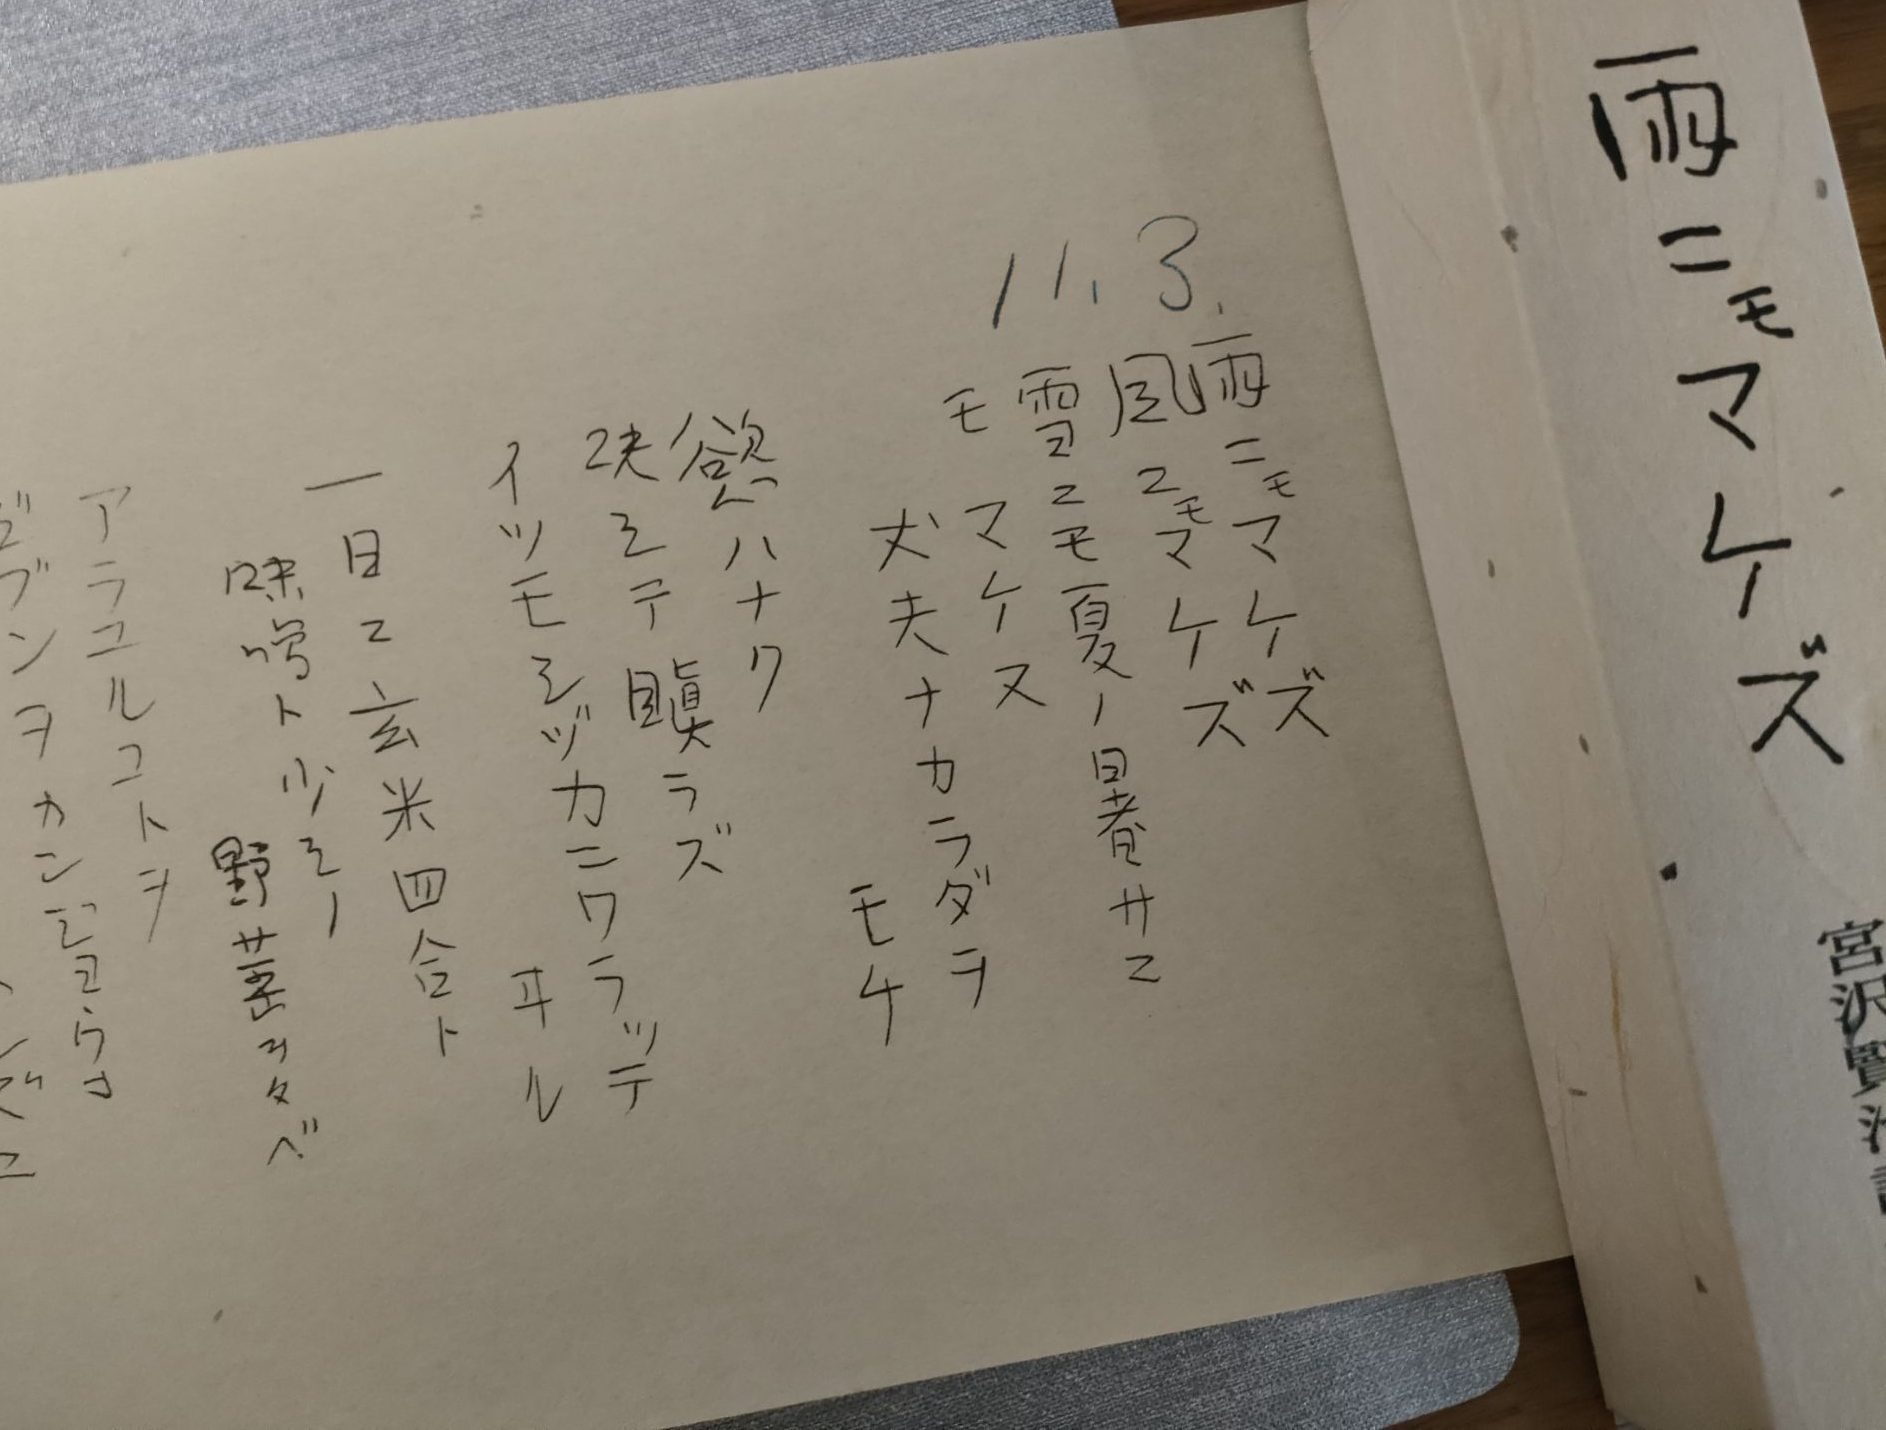 雨ニモマケズ
宮沢賢治
11.3.
雨ニモマケズ
風ニモマケズ
雪ニモ夏ノ暑サニ
モ マケヌ
丈夫ナカラダヲ
モチ
慾ハナク
決シテ瞋ラズ
イツモシヅカニワラッテ
ヰル
一日ニ玄米四合ト
味噌ト少シノ
野菜ヲタベ
アラユルコトヲ
ジブンヲカンジョウニ